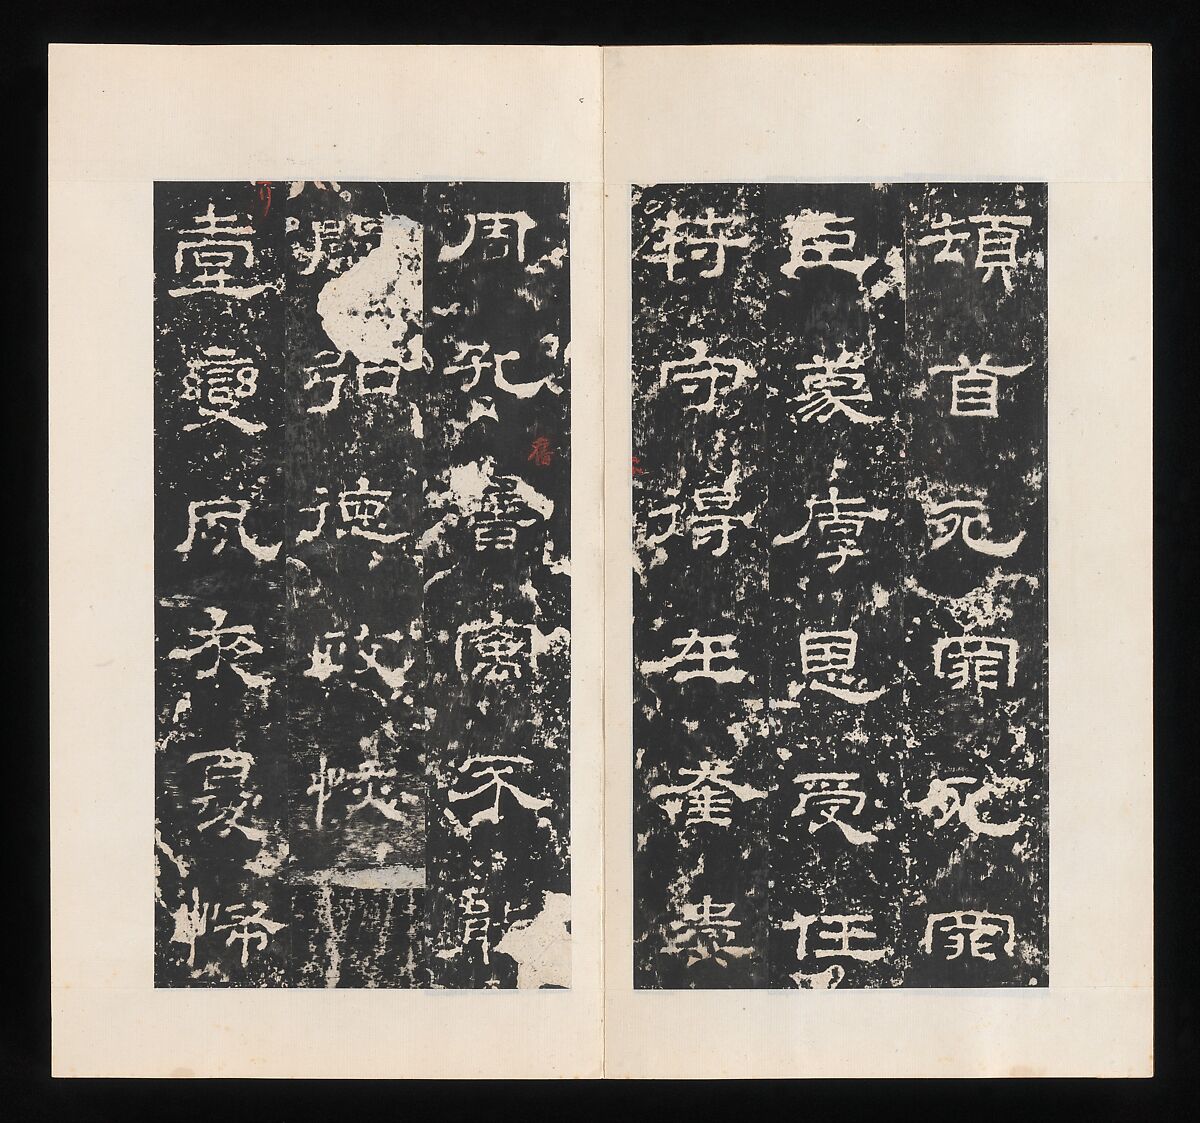 頓首死罪死罪
臣蒙厚恩受任
符守得在奎婁
周孔舊寓不能
弘德政恢
壹變夙夜憂怖
舊